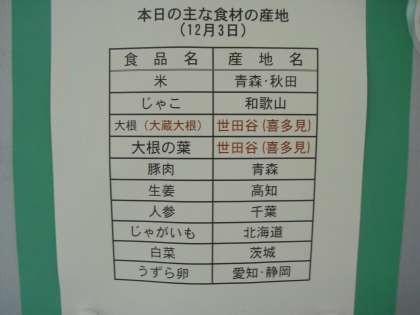 本日の主な食材の産地
(12月3日)
食品名 産地名
米 青森・秋田
じゃこ 和歌山
大根(大蔵大根) 世田谷(喜多見)
大根の葉 世田谷(喜多見)
豚肉 青森
生姜 高知
人参 千葉
じゃがいも 北海道
白菜 茨城
うずら卵 愛知・静岡